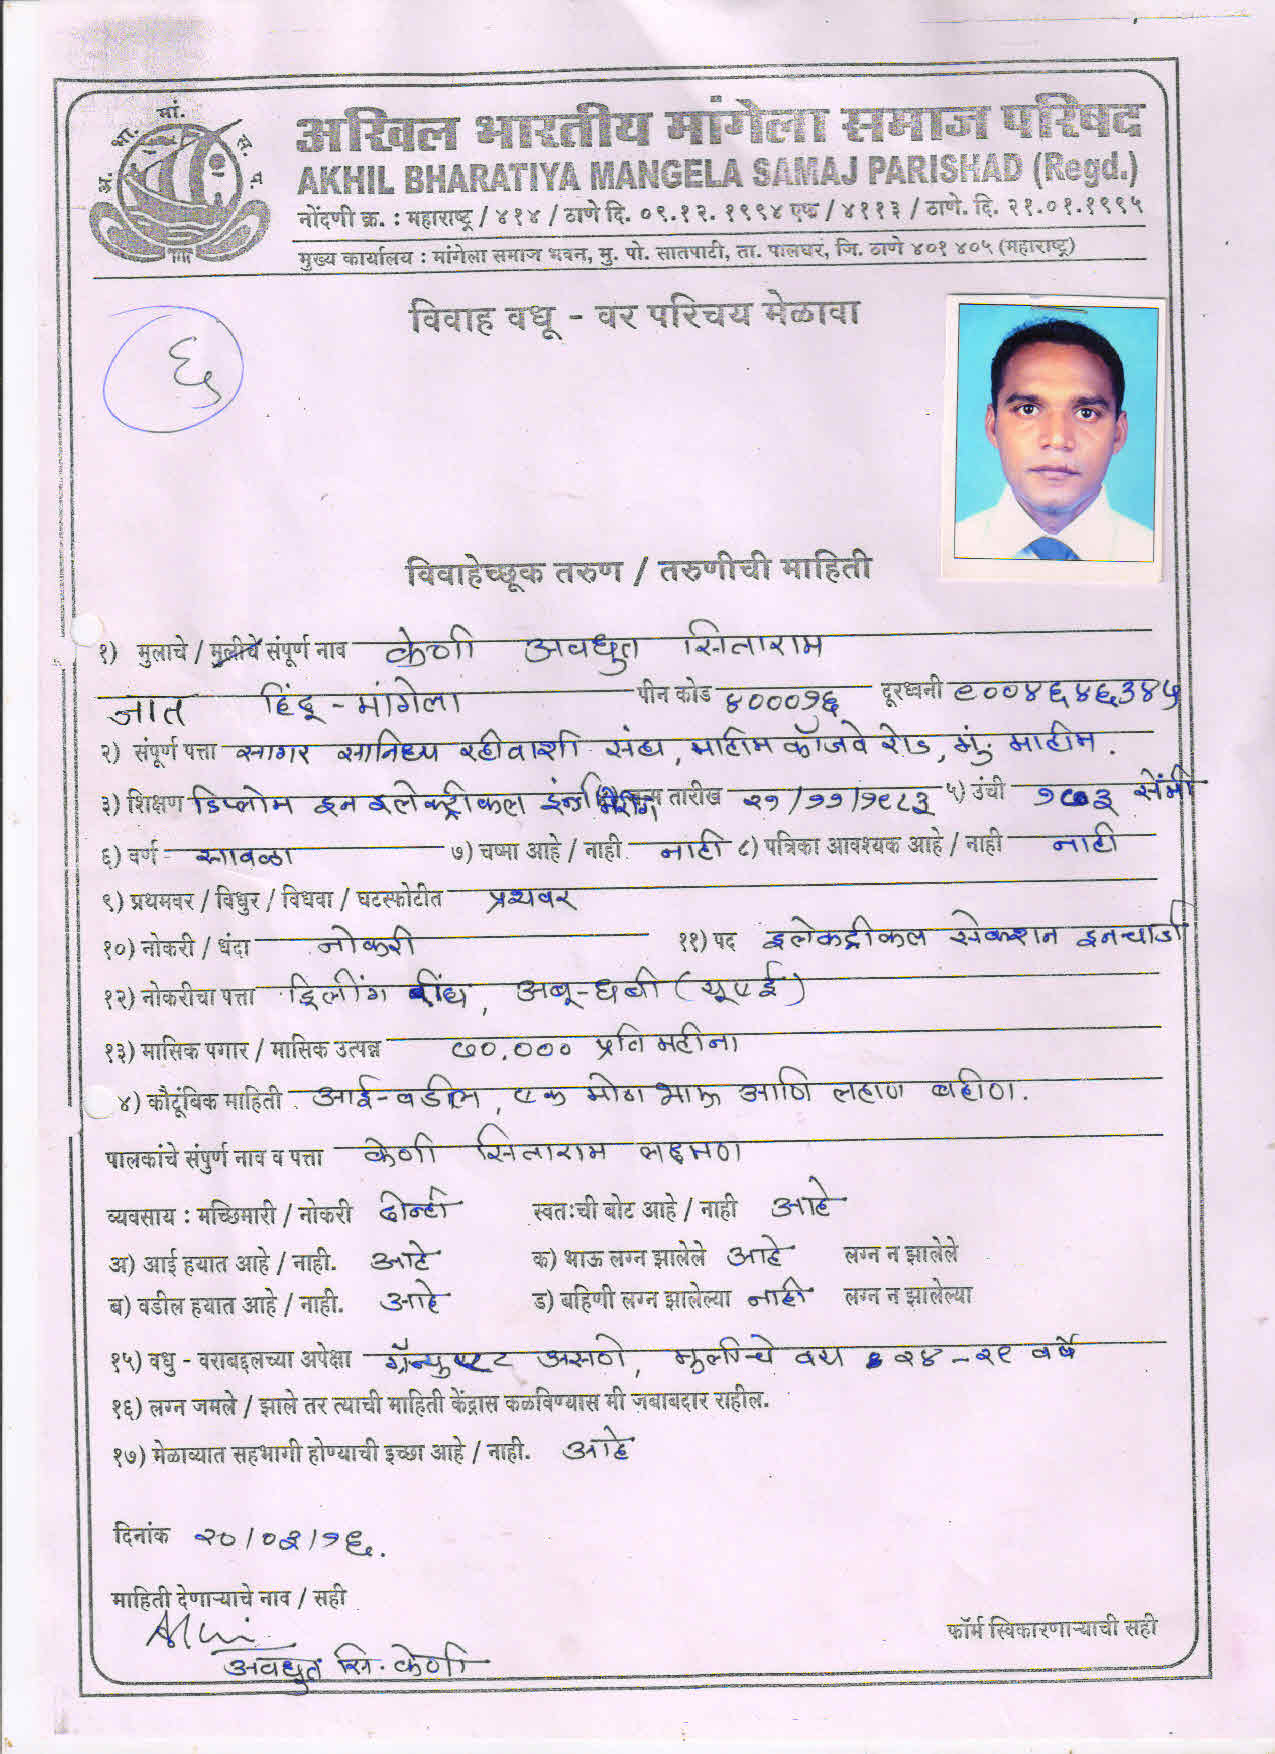 अ. भा. मां. स. प.
अखिल भारतीय मांगेला समाज परिषद
AKHIL BHARATIYA MANGELA SAMAJ PARISHAD (Regd.)
नोंदणी क्र. : महाराष्ट्र / ४१४ / ठाणे दि. ०९.१२.१९९४ एफ / ४११३ / ठाणे. दि. २१.०१.१९९५
मुख्य कार्यालय : मांगेला समाज भवन, मु. पो. सातपाटी, ता. पालघर, जि. ठाणे ४०१ ४०५ (महाराष्ट्र)
विवाह वधू - वर परिचय मेळावा
६
विवाहेच्छूक तरुण / तरुणीची माहिती
१) मुलाचे / मुलीचे संपूर्ण नाव केणी अवधुत सिताराम
जात हिंदू - मांगेला पीन कोड ४०००१६ दूरध्वनी ९००४६४६३४५
२) संपूर्ण पत्ता सागर सानिध्य रहीवाशी संघ, माहीम कॉजवे रोड, मुं. माहीम.
३) शिक्षण डिप्लोम इन इलेक्ट्रीकल इंजिनिअरिंग जन्म तारीख २१/११/१९८३ ५) उंची १७३ सेंमी
६) वर्ण सावळा ७) चष्मा आहे / नाही नाही ८) पत्रिका आवश्यक आहे / नाही नाही
९) प्रथमवर / विधुर / विधवा / घटस्फोटीत प्रथमवर
१०) नोकरी / धंदा नोकरी ११) पद इलेक्ट्रीकल सेक्शन इनचार्ज
१२) नोकरीचा पत्ता ड्रिलींग रींघ, अबू-धबी (यूएई)
१३) मासिक पगार / मासिक उत्पन्न ७०,००० प्रति महीना
४) कौटूंबिक माहिती आई-वडील, एक मोठा भाऊ आणि लहाण बहीण.
पालकांचे संपुर्ण नाव व पत्ता केणी सिताराम लक्ष्मण
व्यवसाय : मच्छिमारी / नोकरी दोन्ही स्वतःची बोट आहे / नाही आहे
अ) आई हयात आहे / नाही. आहे क) भाऊ लग्न झालेले आहे लग्न न झालेले
ब) वडील हयात आहे / नाही. आहे ड) बहिणी लग्न झालेल्या नाही लग्न न झालेल्या
१५) वधु - वराबद्दलच्या अपेक्षा ग्रॅन्युएट असणे, मुलीचे वय २४ - २९ वर्षे
१६) लग्न जमले / झाले तर त्याची माहिती केंद्रास कळविण्यास मी जबाबदार राहील.
१७) मेळाव्यात सहभागी होण्याची इच्छा आहे / नाही. आहे
दिनांक २०/०३/१६.
माहिती देणाऱ्याचे नाव / सही
फॉर्म स्विकारणाऱ्याची सही
अवधुत सि. केणी